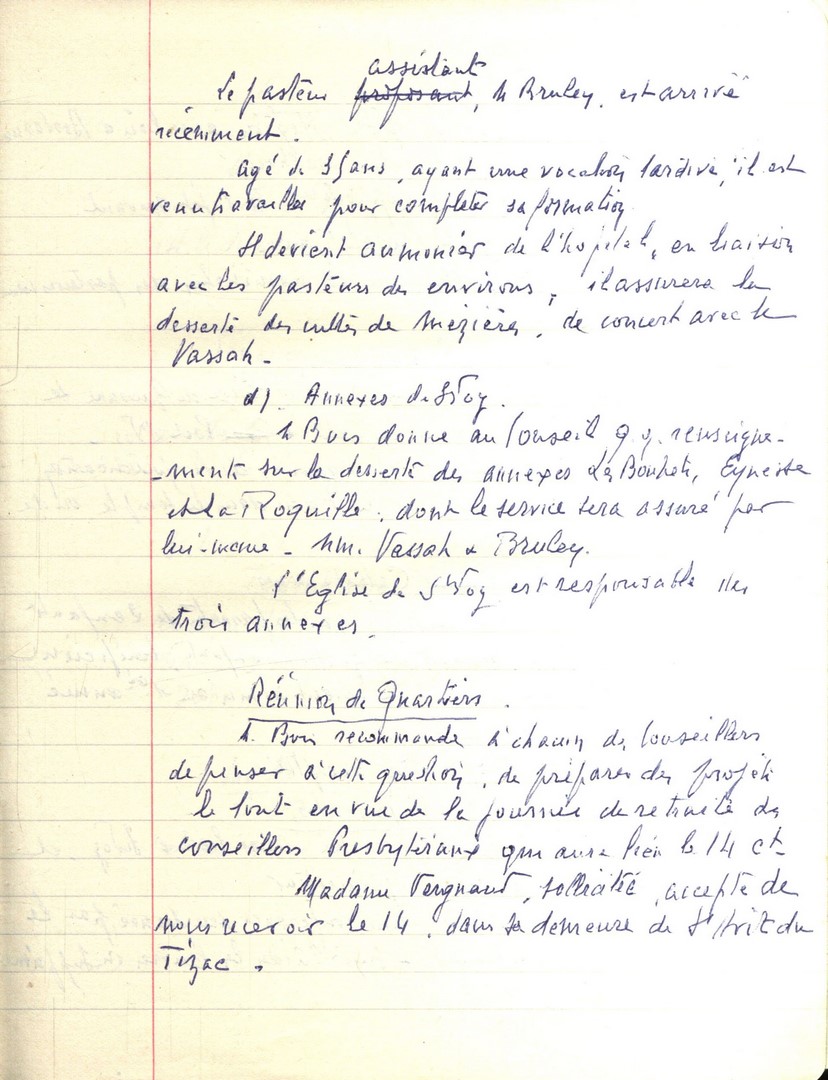 assistant
Le pasteur proposant, M Bruley, est arrivé
récemment.
agé de 35 ans, ayant une vocation tardive, il est
venu travailler pour completer sa formation
Il devient aumonier de l'hopital, en liaison
avec les pasteurs des environs, il assurera la
desserte des cultes de Mézières, de concert avec M
Vassah -
d). Annexes de Ste Foy.
M Bois donne au Conseil q.q. renseigne-
-ments sur la desserte des annexes Les Bouhets, Eynesse
et La Roquille, dont le service sera assuré par
lui-meme - MM. Vassah & Bruley.
L'Eglise de Ste Foy est responsable des
trois annexes.
Réunion de Quartiers.
M. Bois recommande à chacun des Conseillers
de penser à cette question, de préparer des projets
le tout en vue de la journée de retraite des
conseillers Presbytéraux qui aura lieu le 14 ct
Madame Vergnaud, sollicitée, accepte de
nous recevoir le 14, dans sa demeure de St Avit du
Tizac.